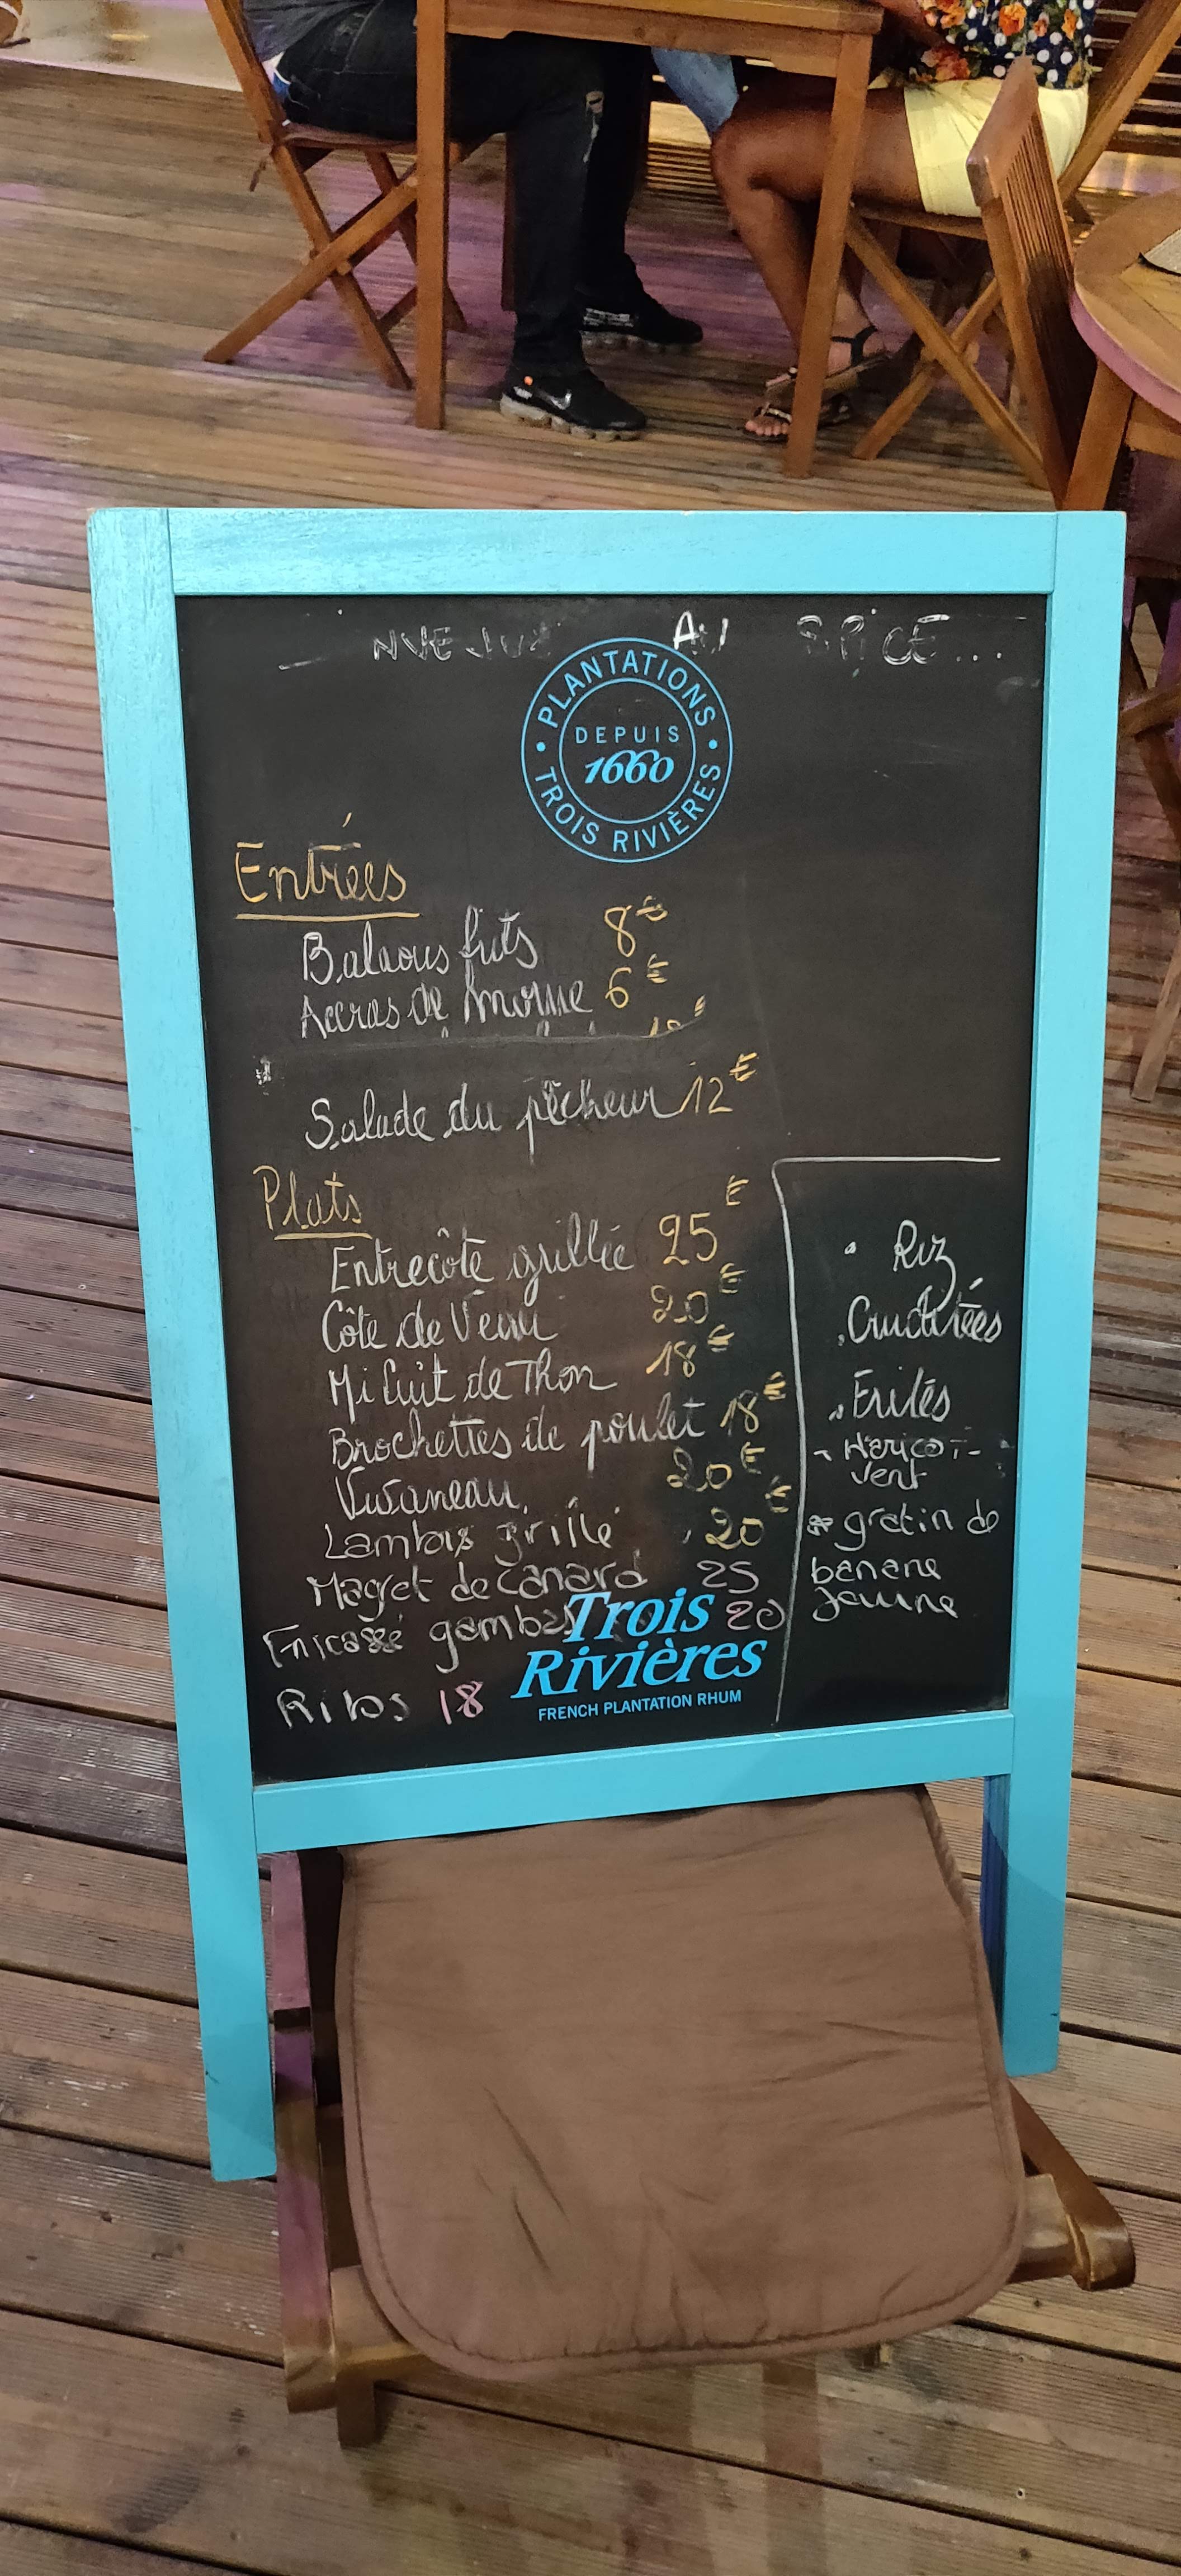 AU SPICE...
PLANTATIONS
DEPUIS
1660
TROIS RIVIÈRES
Entrées
Balaous frits 8€
Accras de morue 6€
Salade du pêcheur 12€
Plats
Entrecôte grillée 25€
Côte de Veau 20€
Mi Cuit de Thon 18€
Brochettes de poulet 18€
Vivaneau 20€
Lambis grillé 20€
Magret de Canard 25
Fricassé gambas 20
Ribs 18
Riz
Crudités
Frites
Haricot-
vert
gratin de
banane
Jaune
Trois
Rivières
FRENCH PLANTATION RHUM